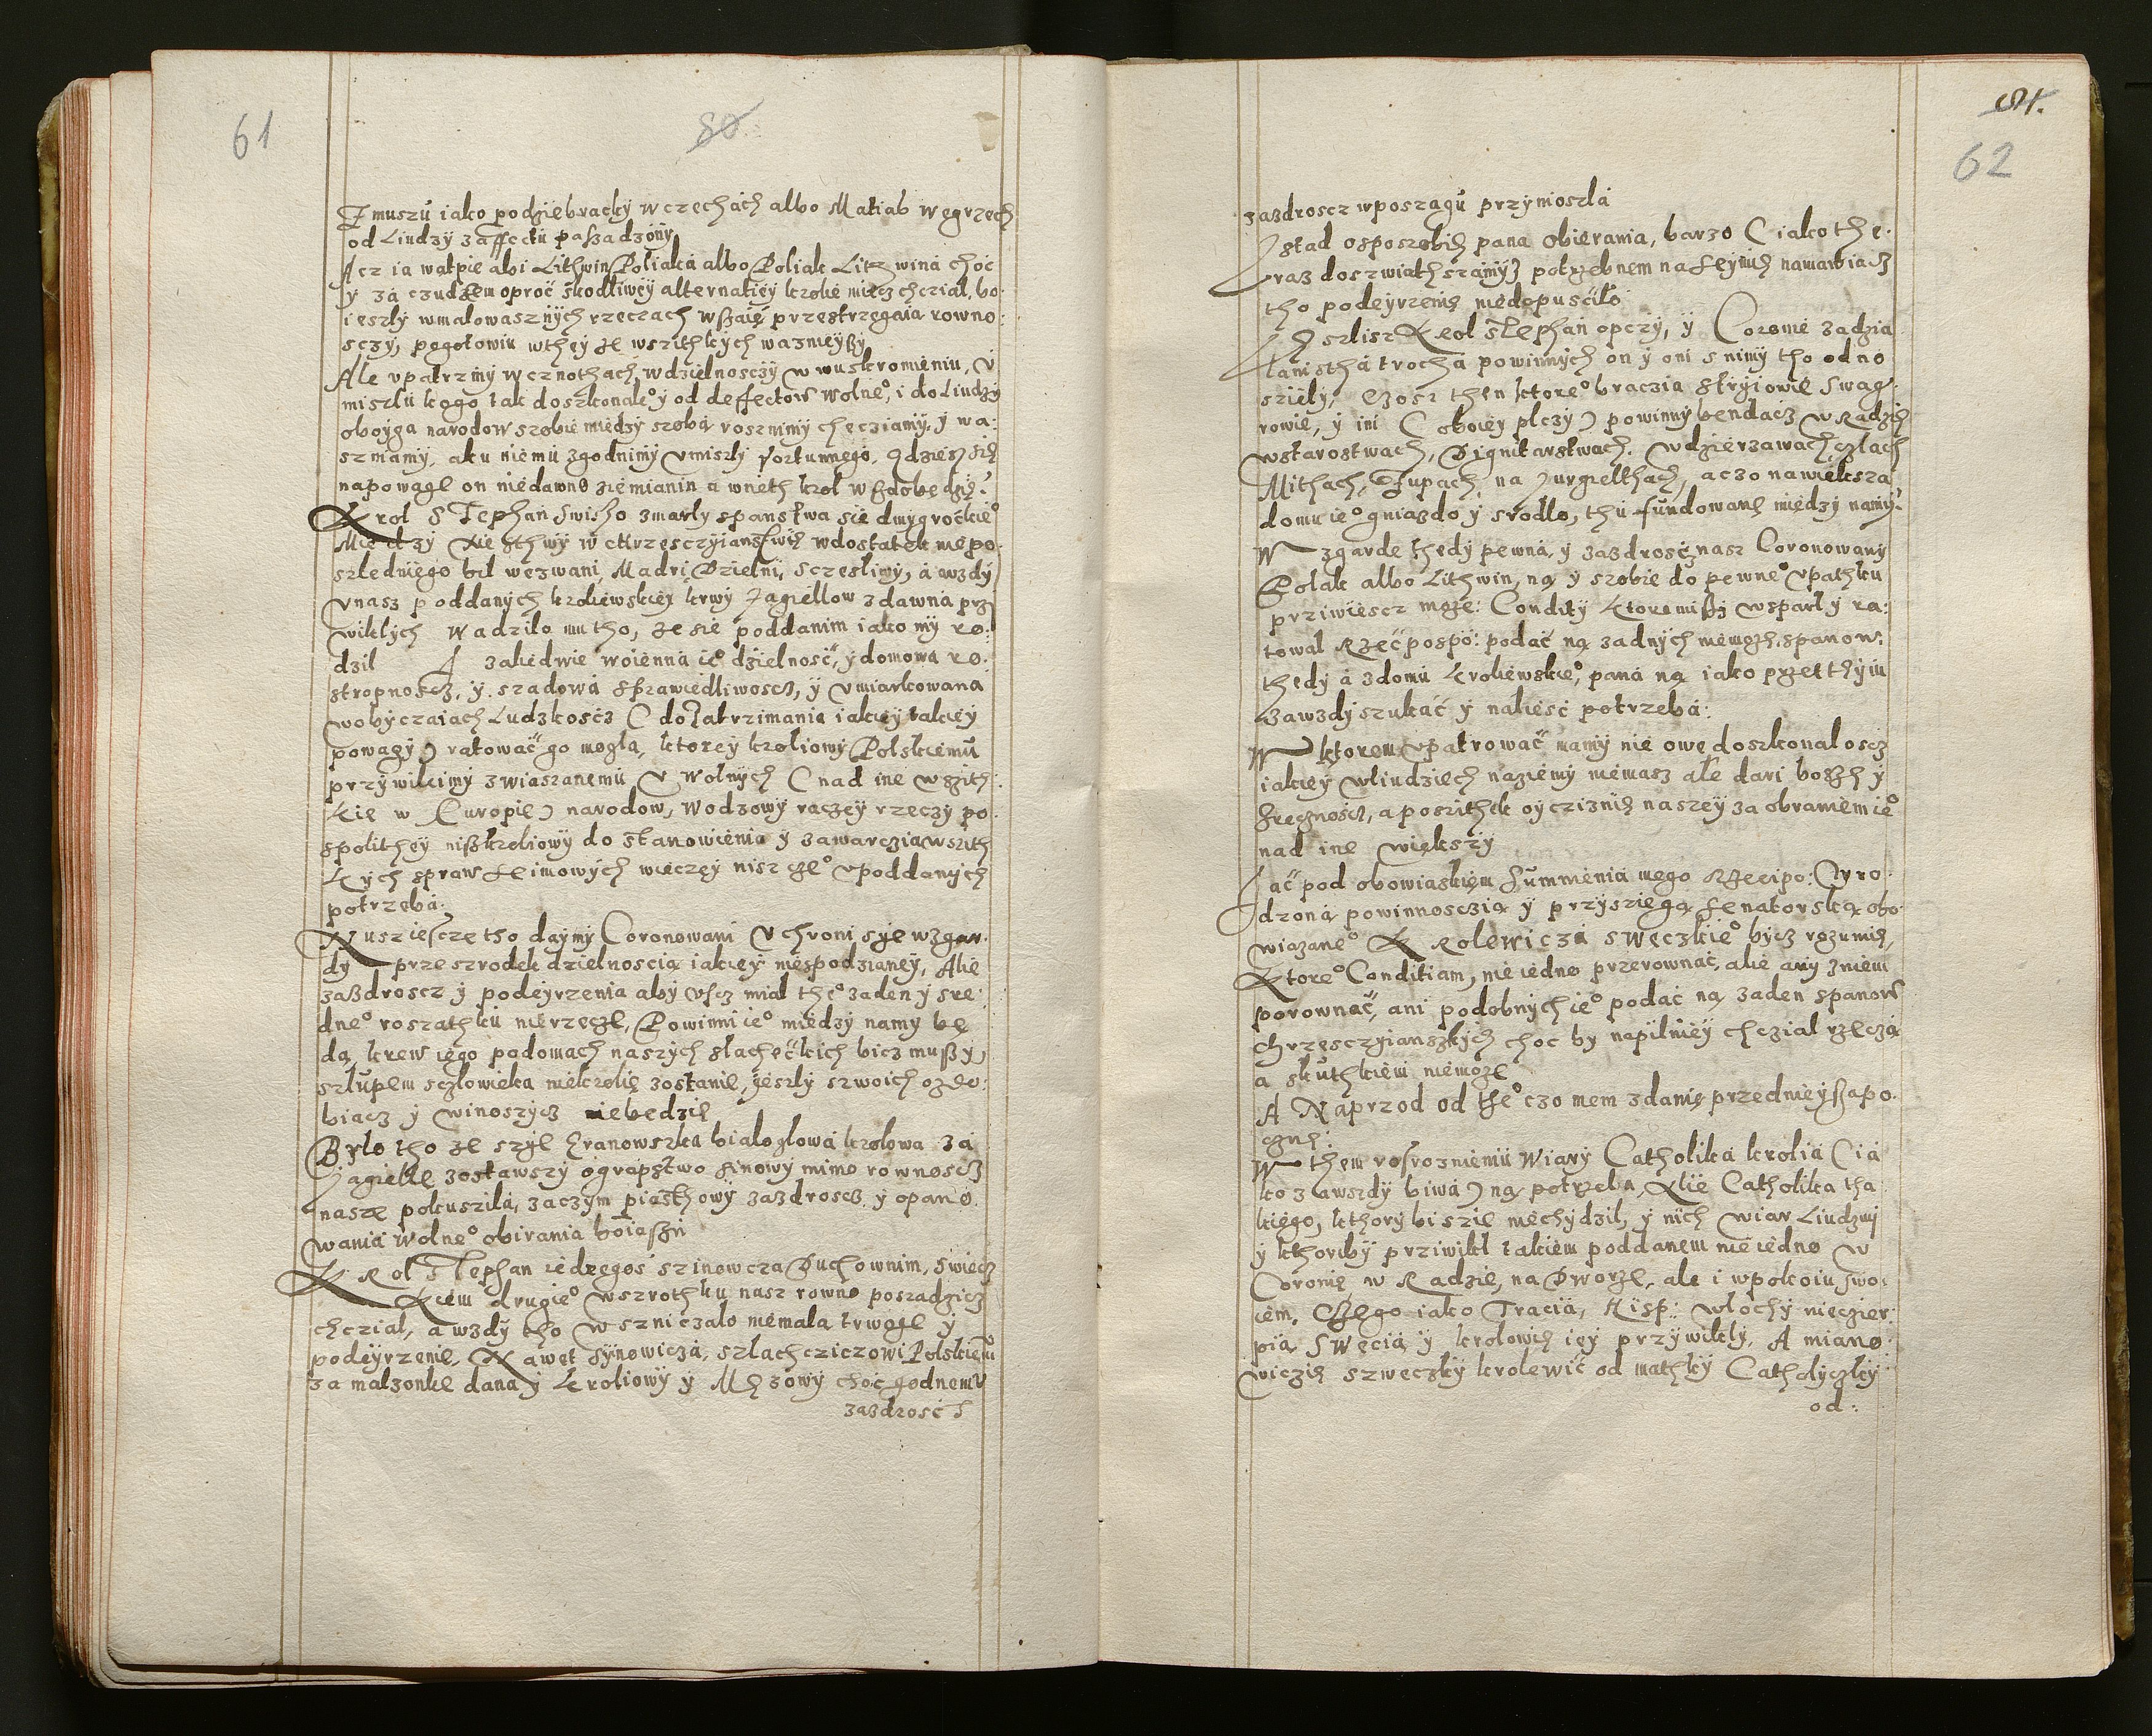 61
80
Zmuszu iako podziebracky w czechach albo Matias wegrzech
od Liudzy zaffectu paszadzony
Acz ia watpie abi Lithwin Poliaka albo Poliak Litzwina choc
y za czudzem oprocz skodliwey alternatiey krolie miecz chczial, bo
ieszly wmalowasznych rzeczach wszaie przestrzegaia rowno:
sczy, pogotowiu wthey ze wszithkych waznieyszy
Ale vpatrzmy w cznothach, w dzielnosczy w wuskromieniu, v
miszlu kogo tak doszkonale° y od deffectow wolne°, i do Liudzy
oboyga narodow szobie miedzy szoba roszmimy checziamy, y wa:
szmamy, aku niemu zgodnimy vmiszly fortunnego. Gdziesz sie
napowage on niedawno ziemianin a wneth krol wszdobedzie?
Krol STephan swiszo zmarly spanstwa siedmygrockie°
Miedzy Xiezthwy w chrzesczyianstwie wdostatek niepo
szledniego bil wezwani, Madri Dzielni, sczesliwy, a wzdy
vnasz poddanych kroliewskiey krwy Jagiellow zdawna przi
wiklych wadzilo mu tho, ze sie poddanim iako my ro:
dzil A zaliedwie woienna ie° dzielnosc, y domowa ro:
stropnoscz, y szadowa sprawiedliwoscz, y vmiarkowana
wobyczaiach Ludzkoscz ( do zatrzimania iakiey takiey
powagy ) ratowac go mogla, ktorey kroliowy Polskiemu
przywileimy zwiaszanemu v wolnych ( nad ine wszith:
kie w Europie ) narodow, wodzowy raczey rzeczy po
spolithey niszkroliowy do stanowienia y zawarczia wszith
kych spraw Seimowych wieczey nisz ze° vpoddanych
potrzeba:
Nuszieszcze tho daymy Coronowani vchroni syie wzgar
dy przeszrodek dzielnoscia iakiey niespodzianey, Alie
zazdroscz y podeyrzenia aby uscz mial the° zaden y sre:
dne° roszathku nierzecze, Powinni ie° miedzy namy be
da, krew iego padomach naszych slacheckich bicz muszy,
szlupem sczlowieka niekrolie zostanie, yeszly szwoich ozdo:
biacz y winoszycz niebedzie
Bylo tho ze szyl Granowszka bialoglowa krolowa za
Jagielle zostawszy ograpstwo Sinowy mimo rownoscz
nasze pokuszila, zaczym piasthowy zazdroscz y opano
wania wolne° obirania boiaszn
KRol STephan iedzegos szinowcza Duchownim, swiecz
kiem drugie° wszrothku nasz rowno poszadzicz
chczial, a wzdy tho wszniczalo niemala trwoge y
podeyrzenie. Nawet Synowicza, szlachcziczowi Polskiemu
za malzonke dana y kroliowy y Mezowy choc godnemu
zazdrosc S
81.
62
zazdroscz wposzagu przynioszla
Jstad osposzobich pana obierania, barzo ( iako the:
raz doszwiathszamy) potrzebnem na Seymuch namawiacz
tho podeyrzenie niedopuscilo
Jeszlisz Krol STephan opczy, y Coronie zadzia
lanistha trocha powinnych on y oni snimy tho odno
sziely, czosz then ktore° braczia stryiowie swag
rowie, y ini ( oboiey plczy ) powinny bendacz w Radzie
wstarostwach, Dignitarstwach. wdzierzawach, czlach
Mithach, Zupach, na Jurgielthach, aczo nawieksza
domu ie° gniazdo y srodlo, thu fundowane miedzy namy?
Wzgarde thedy pewna, y zazdrosc nasz Coronowany
Polak albo Lithwin, na y szobie do pewne° vpathku
prziwiescz moze: Condity ktoremiszy wsparl y ra:
towal Rzecpospo: podac na zadnych niemoze. spanow:
thedy a zdomu kroliewskie°, pana na iako przetthym
zawzdy szukac y naliesc potrzeba:
W ktorem vpatrowac mamy nie owe doszkonaloscz
iakiey wliudziech naziemy niemasz ale dari bosze y
srecznoscz, a poszithek oyczizniе naszey za obraniem ie°
nad ine wiekszy
Jac pod obowiaskiem Summienia mego Rzecipo: Vro
dzona powinnosczia y przysziega Senatorska obo
wiazane° KRolewicza sweczkie° bycz rozumie,
Ktore° Conditiam, nie iedno przerownac, alie any zniem
porownac, ani podobnych ie° podac na zaden spanow
chrzesczyianszkych choc by napilniey chczial rzecza
a skuthkiem niemoze
A Naprzod od the° czo mem zdanie przednieysza po
czne:
W them rosrozniemu wiary Catholika krolia ( ia
ko zawszdy biwa ) na potrzeba, Alie Catholika tha
kiego, kthory bi szie niechydzil, y nich wiar Liudzmy
y kthoriby przivikl takiem poddanem nie iedno w
Coronie w Radzie, na Dworze, ale i wpokoiu swo:
iem. Czego iako Tracia, Hisp: wlochy nieczier
pia Swecia y krolowie iey przywikly, A miano:
wiczie szweczky krolewic od mathky Catholyczky
od: